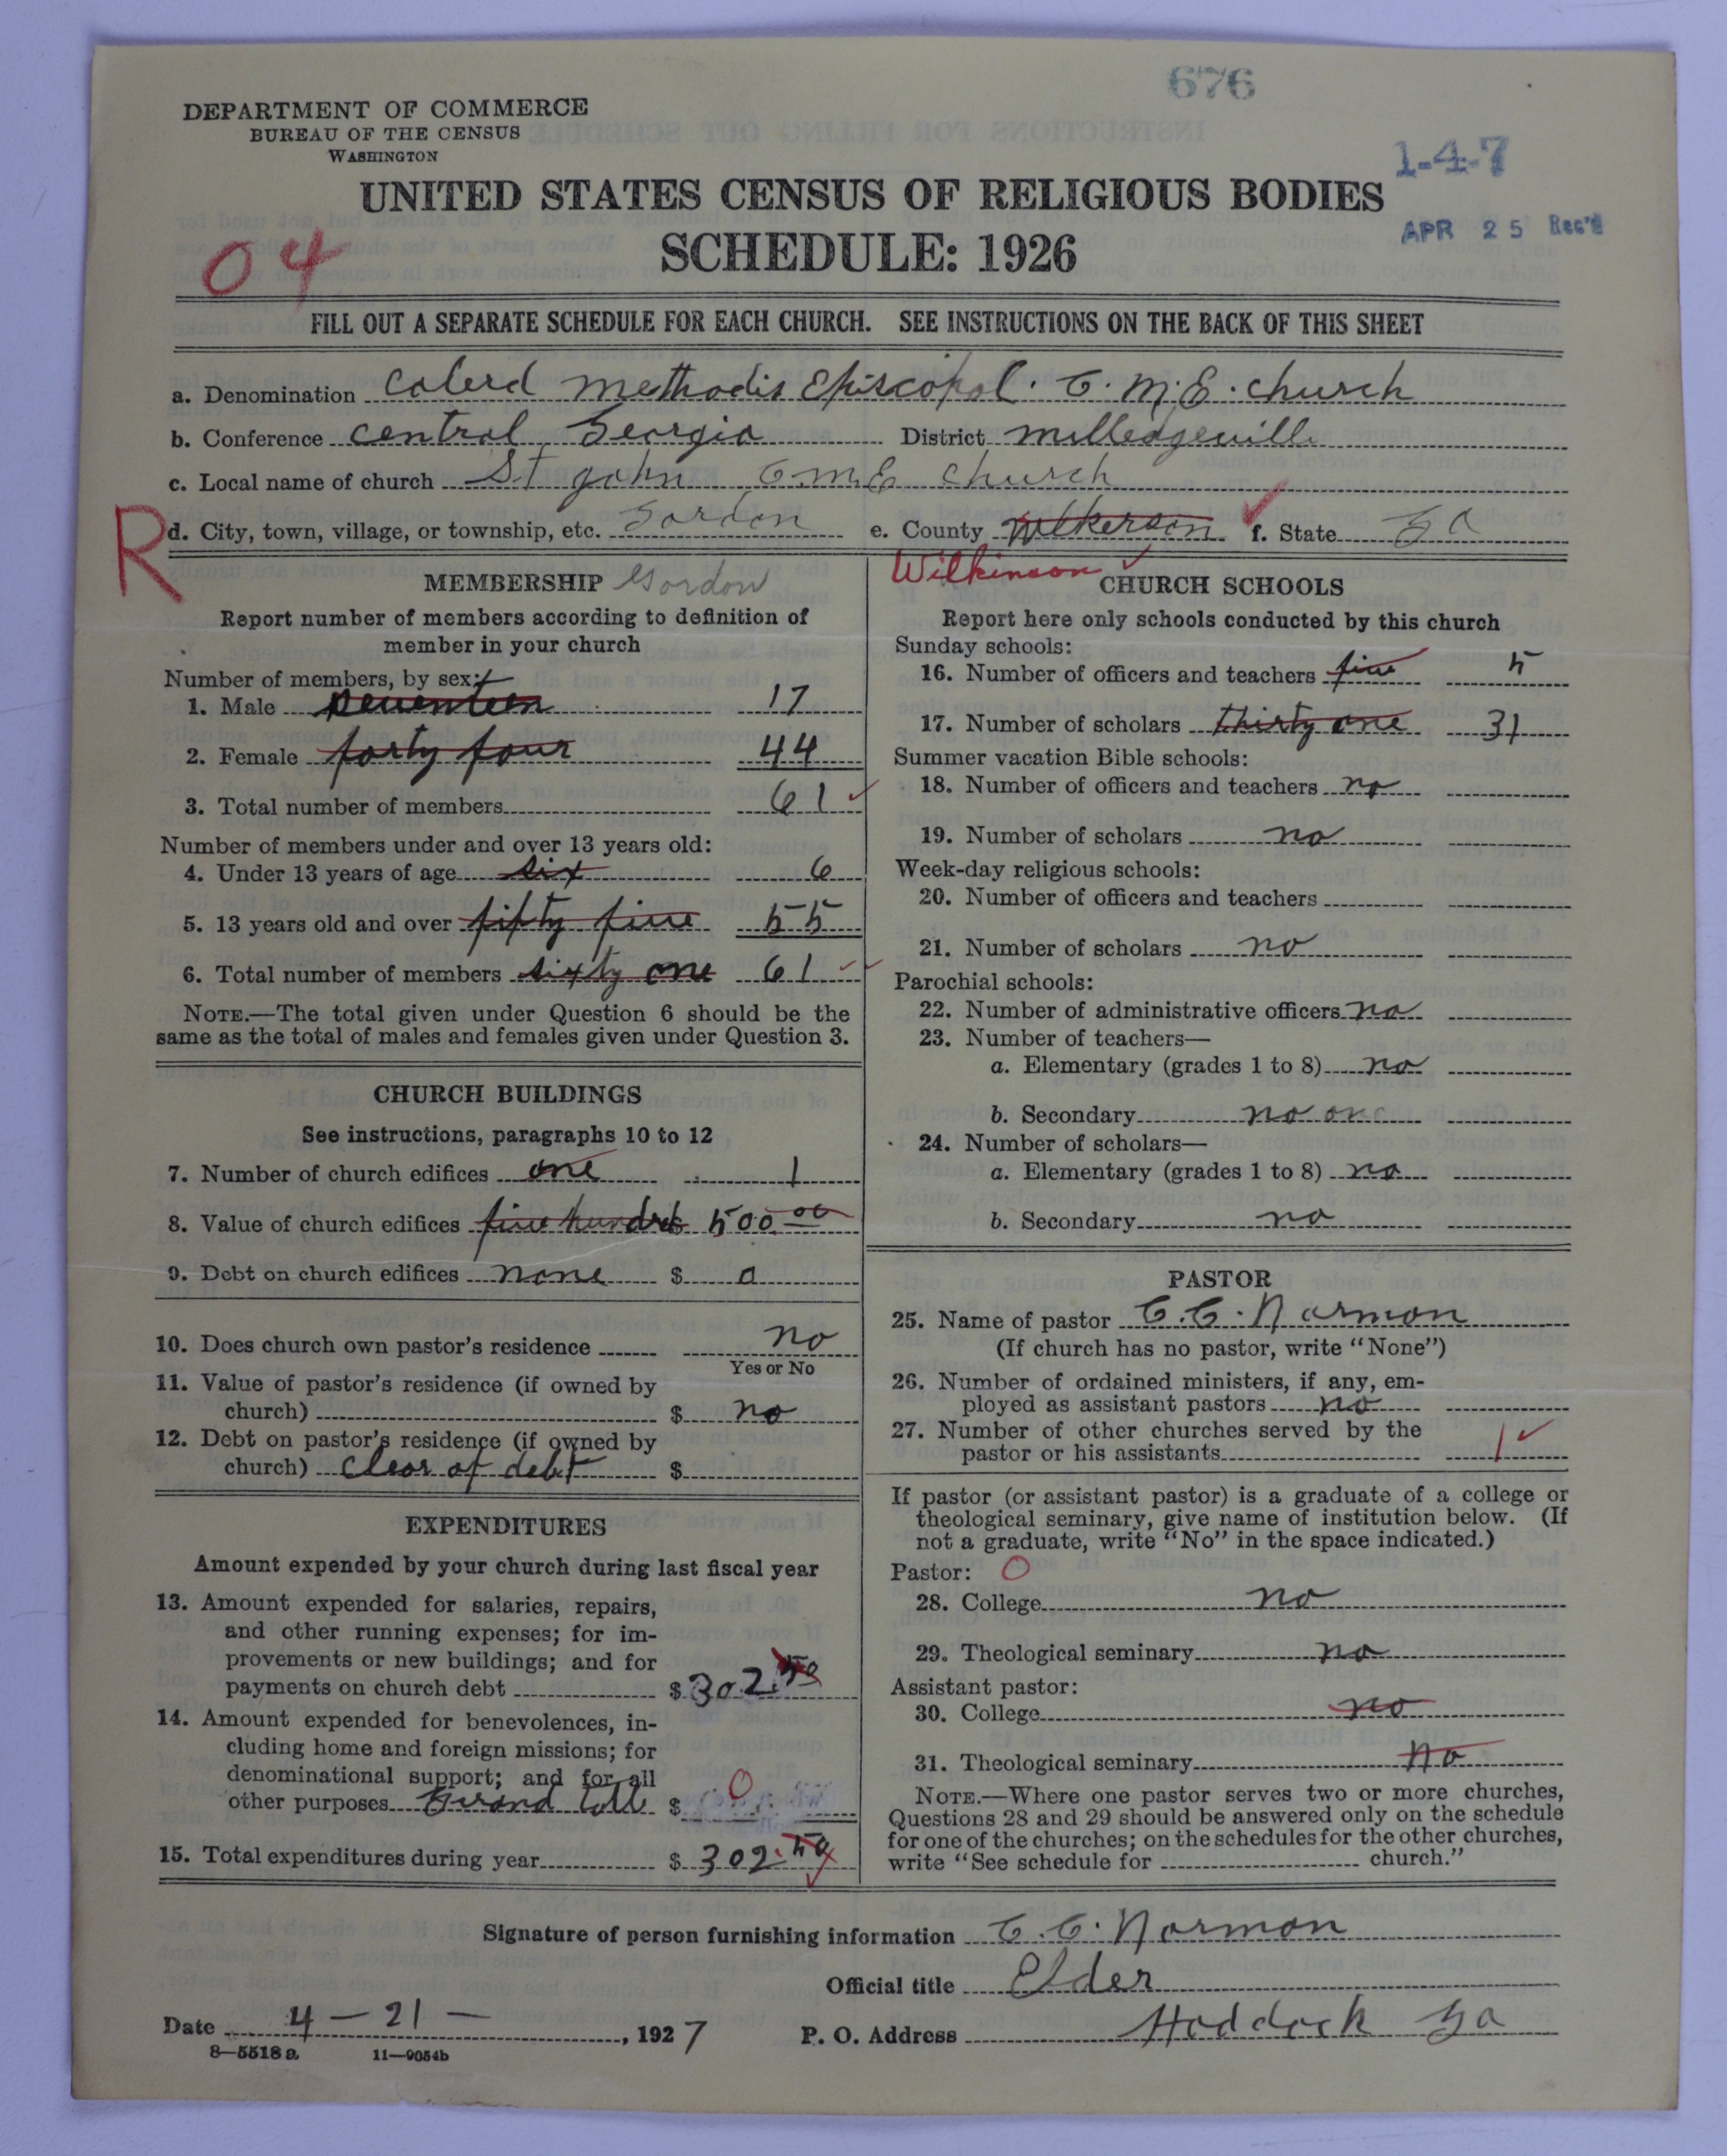 676
DEPARTMENT OF COMMERCE
BUREAU OF THE CENSUS
WASHINGTON
1-4-7
UNITED STATES CENSUS OF RELIGIOUS BODIES
APR 25 Rec'd
04
SCHEDULE: 1926
FILL OUT A SEPARATE SCHEDULE FOR EACH CHURCH. SEE INSTRUCTIONS ON THE BACK OF THIS SHEET
a. Denomination Colerd methodis Episcopal. C. M. E. church
b. Conference central Georgia District milledgeville
c. Local name of church St john C.M.E church
R
d. City, town, village, or township, etc. Gordon e. County Wilkerson f. State Ga
Wilkinson
MEMBERSHIP Gordon
Report number of members according to definition of
member in your church
Number of members, by sex:
1. Male seventeen 17
2. Female forty four 44
3. Total number of members 61
Number of members under and over 13 years old:
4. Under 13 years of age six 6
5. 13 years old and over fifty five 55
6. Total number of members sixty one 61
NOTE.—The total given under Question 6 should be the
same as the total of males and females given under Question 3.
CHURCH BUILDINGS
See instructions, paragraphs 10 to 12
7. Number of church edifices one 1
8. Value of church edifices five hundred 500.00
9. Debt on church edifices none $ 0
10. Does church own pastor's residence no
Yes or No
11. Value of pastor's residence (if owned by
church) $ no
12. Debt on pastor's residence (if owned by
church) clear of debt $
EXPENDITURES
Amount expended by your church during last fiscal year
13. Amount expended for salaries, repairs,
and other running expenses; for im-
provements or new buildings; and for
payments on church debt $ 302.50
14. Amount expended for benevolences, in-
cluding home and foreign missions; for
denominational support; and for all
other purposes $ 0
15. Total expenditures during year $ 302.50
CHURCH SCHOOLS
Report here only schools conducted by this church
Sunday schools:
16. Number of officers and teachers five 5
17. Number of scholars thirty one 31
Summer vacation Bible schools:
18. Number of officers and teachers no
19. Number of scholars no
Week-day religious schools:
20. Number of officers and teachers
21. Number of scholars no
Parochial schools:
22. Number of administrative officers no
23. Number of teachers—
a. Elementary (grades 1 to 8) no
b. Secondary no one
24. Number of scholars—
a. Elementary (grades 1 to 8) no
b. Secondary no
PASTOR
25. Name of pastor C.C. Normon
(If church has no pastor, write "None")
26. Number of ordained ministers, if any, em-
ployed as assistant pastors no
27. Number of other churches served by the
pastor or his assistants 1
If pastor (or assistant pastor) is a graduate of a college or
theological seminary, give name of institution below. (If
not a graduate, write "No" in the space indicated.)
Pastor: 0
28. College no
29. Theological seminary no
Assistant pastor:
30. College no
31. Theological seminary no
NOTE.—Where one pastor serves two or more churches,
Questions 28 and 29 should be answered only on the schedule
for one of the churches; on the schedules for the other churches,
write "See schedule for church."
Signature of person furnishing information C.C. Normon
Official title Elder
Date 4-21-, 1927 P. O. Address Haddock Ga
8—5518 a 11—9054b